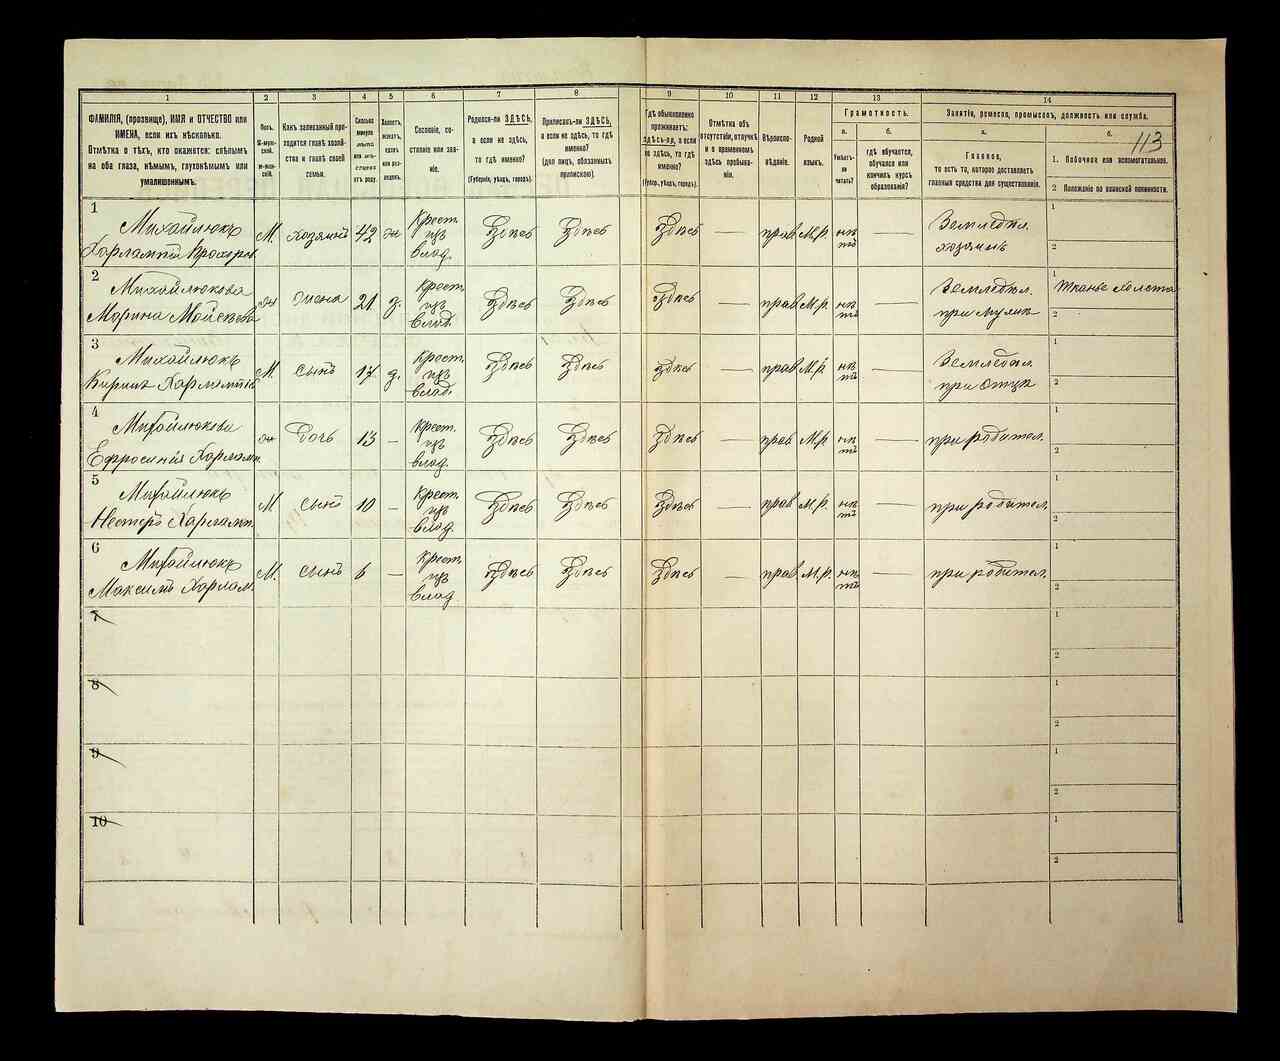 1 2 3 4 5 6 7 8 9 10 11 12 13 14
ФАМИЛІЯ, (прозвище), ИМЯ и ОТЧЕСТВО или
ИМЕНА, если ихъ нѣсколько.
Отмѣтка о тѣхъ, кто окажется: слѣпымъ
на оба глаза, нѣмымъ, глухонѣмымъ или
умалишеннымъ.
Полъ.
М-мужской.
ж-женскій.
Какъ записанный приходится
главѣ хозяйства
и главѣ своей
семьи.
Сколько
минуло
лѣтъ
или мѣсяцевъ
отъ роду.
Холостъ,
женатъ,
вдовъ
или разведенъ.
Сословіе, состояніе
или званіе.
Родился-ли ЗДѢСЬ,
а если не здѣсь,
то гдѣ именно?
(Губернія, уѣздъ, городъ).
Приписанъ-ли ЗДѢСЬ,
а если не здѣсь, то гдѣ
именно?
(для лицъ, обязанныхъ
припискою).
Гдѣ обыкновенно
проживаетъ:
здѣсь-ли, а если
не здѣсь, то гдѣ
именно?
(Губер., уѣздъ, городъ).
Отмѣтка объ
отсутствіи, отлучкѣ
и о временномъ
здѣсь пребываніи.
Вѣроисповѣданіе.
Родной
языкъ.
Грамотность.
а.
Умѣетъ-ли
читать?
б.
гдѣ обучается,
обучался или
кончилъ курсъ
образованія?
Занятіе, ремесло, промыселъ, должность или служба.
а.
Главное,
то есть то, которое доставляетъ
главныя средства для существованія.
б.
113
1. Побочное или вспомогательное.
2 Положеніе по воинской повинности.
1 Михайлюкъ
Харлампій Прохоров М. хозяинъ 42 ж Крест. изъ влад. Здѣсь Здѣсь Здѣсь — прав М.р. нѣтъ — Земледѣл. хозяинъ 1 2
2 Михайлюкова
Марина Моисѣева ж жена 21 з. Крест. изъ влад. Здѣсь Здѣсь Здѣсь — прав М.р. нѣтъ — Земледѣл. при мужѣ 1 Тканье холста 2
3 Михайлюкъ
Харлампіев М. сынъ 17 з. Крест. изъ влад. Здѣсь Здѣсь Здѣсь — прав М.р. нѣтъ — Земледѣл. при отцѣ 1 2
4 Михайлюкова
Ефросинія Харламп. ж дочь 13 — Крест. изъ влад. Здѣсь Здѣсь Здѣсь — прав М.р. нѣтъ — при родител. 1 2
5 Михайлюкъ
Несторъ Харламп. М сынъ 10 — Крест. изъ влад. Здѣсь Здѣсь Здѣсь — прав М.р. нѣтъ — при родител. 1 2
6 Михайлюкъ
Максимъ Харлам. М. сынъ 6 — Крест. изъ влад Здѣсь Здѣсь Здѣсь — прав М.р. нѣтъ — при родител. 1 2
7 1 2
8 1 2
9 1 2
10 1 2